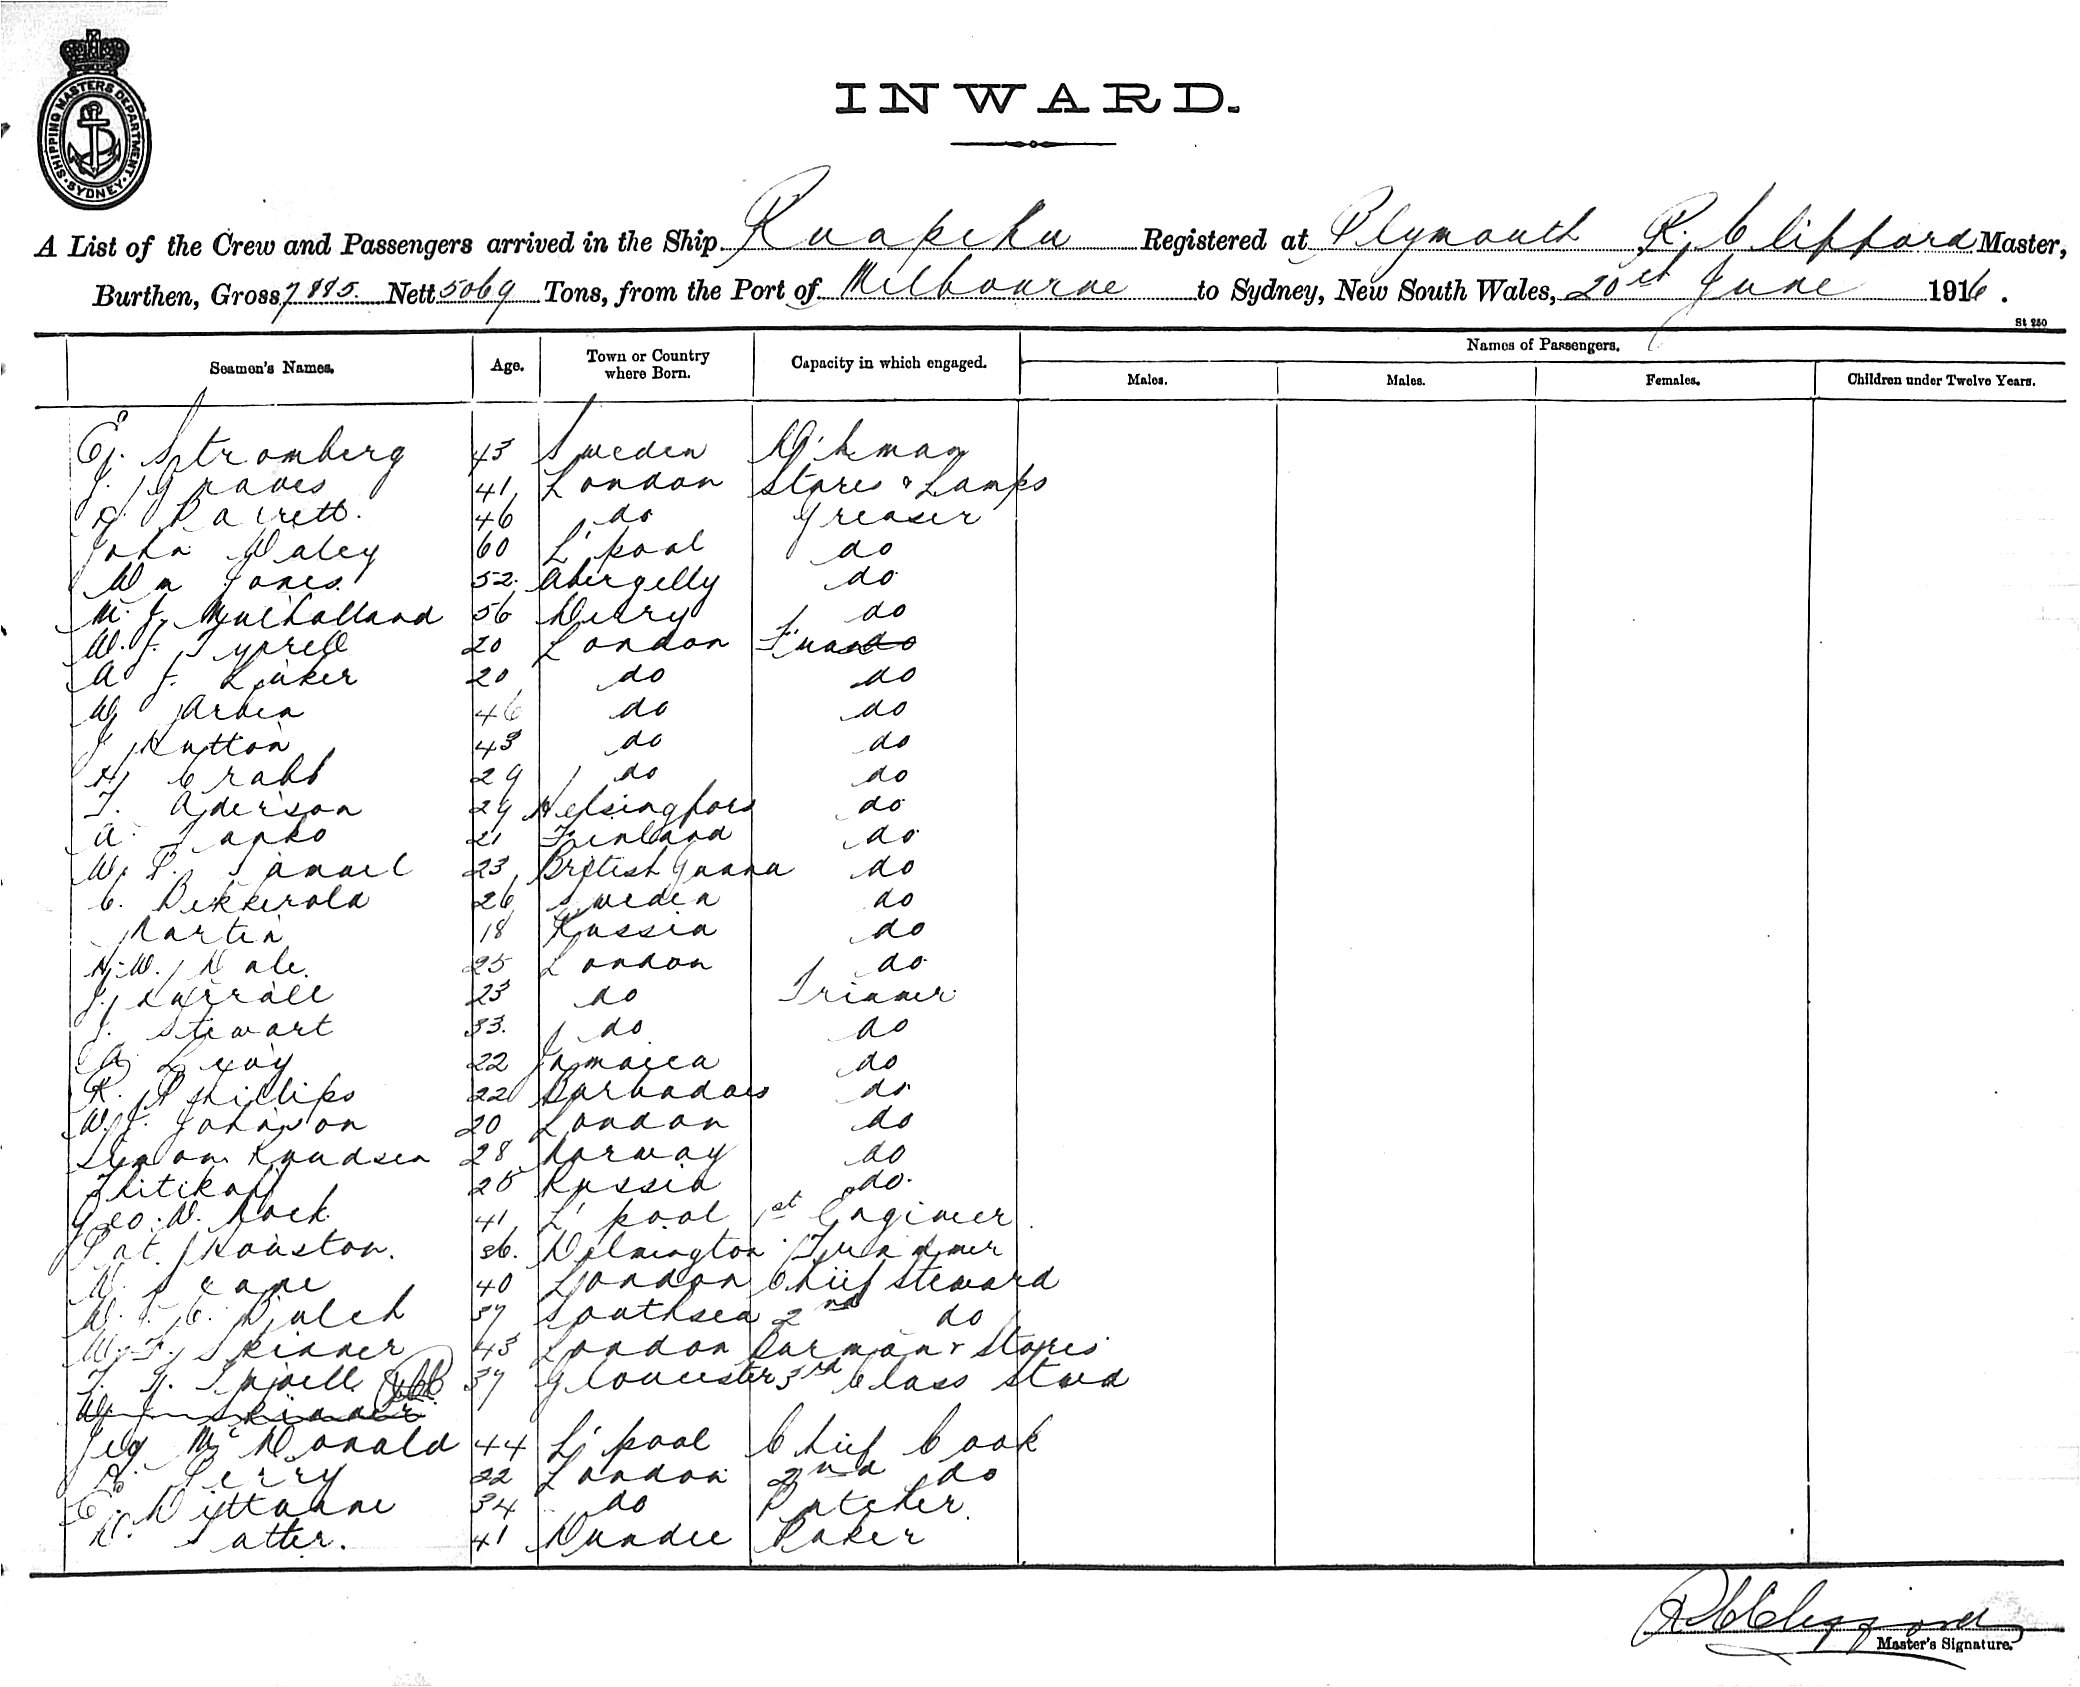 SHIPPING MASTERS DEPARTMENT · SYDNEY ·
INWARD.
A List of the Crew and Passengers arrived in the Ship Ruapehu Registered at Plymouth R. Clifford Master,
Burthen, Gross 7885. Nett 5069 Tons, from the Port of Melbourne to Sydney, New South Wales, 20th June 1916.
St 250
Seamen's Names. Age. Town or Country where Born. Capacity in which engaged. Names of Passengers.
Males. Males. Females. Children under Twelve Years.
E. Stromberg 43 Sweden
J. Graves 41 London Stores & Lamps
Barrett. 46 do Greaser
John Daley 60 L'pool do
Wm Jones. 52. Abergelly do
M. J. Mulholland 56 Derry do
W. J. Tyrrell 20 London
A J. Linker 20 do do
W 46 do do
J Hutton 43 do do
H Crabb 29 do do
T. Aderson 29 Helsingfors do
A. Tapko 21 Finland do
W. P. Samuel 23 British Guana do
C. Bekkerold 26 Sweden do
Martin 18 Russia do
H. W. Dale. 25 London do
J. 23 do Trimmer
J. Stewart 33. do do
A Levoy 22 Jamaica do
R. Phillips 22 Barbadoes do
W. J. Johnson 20 London do
Simon Knudsen 28 Norway do
25 Russia do.
Geo. D. Mock 41 L'pool 1st Engineer
Pat. Houston. 36. Wilmington
40 London Chief Steward
W. J. C. Balch 37 Southsea 2nd do
W. F. Skinner 43 London Barman & Stores
37 Gloucester 3rd Class Stwd
W. Skinner
Mc Donald 44 L'pool Chief Cook
Perry 22 London 2nd do
E. 34 do Butcher.
D. Salter. 41 Dundee Baker
R C Clifford
Master's Signature.